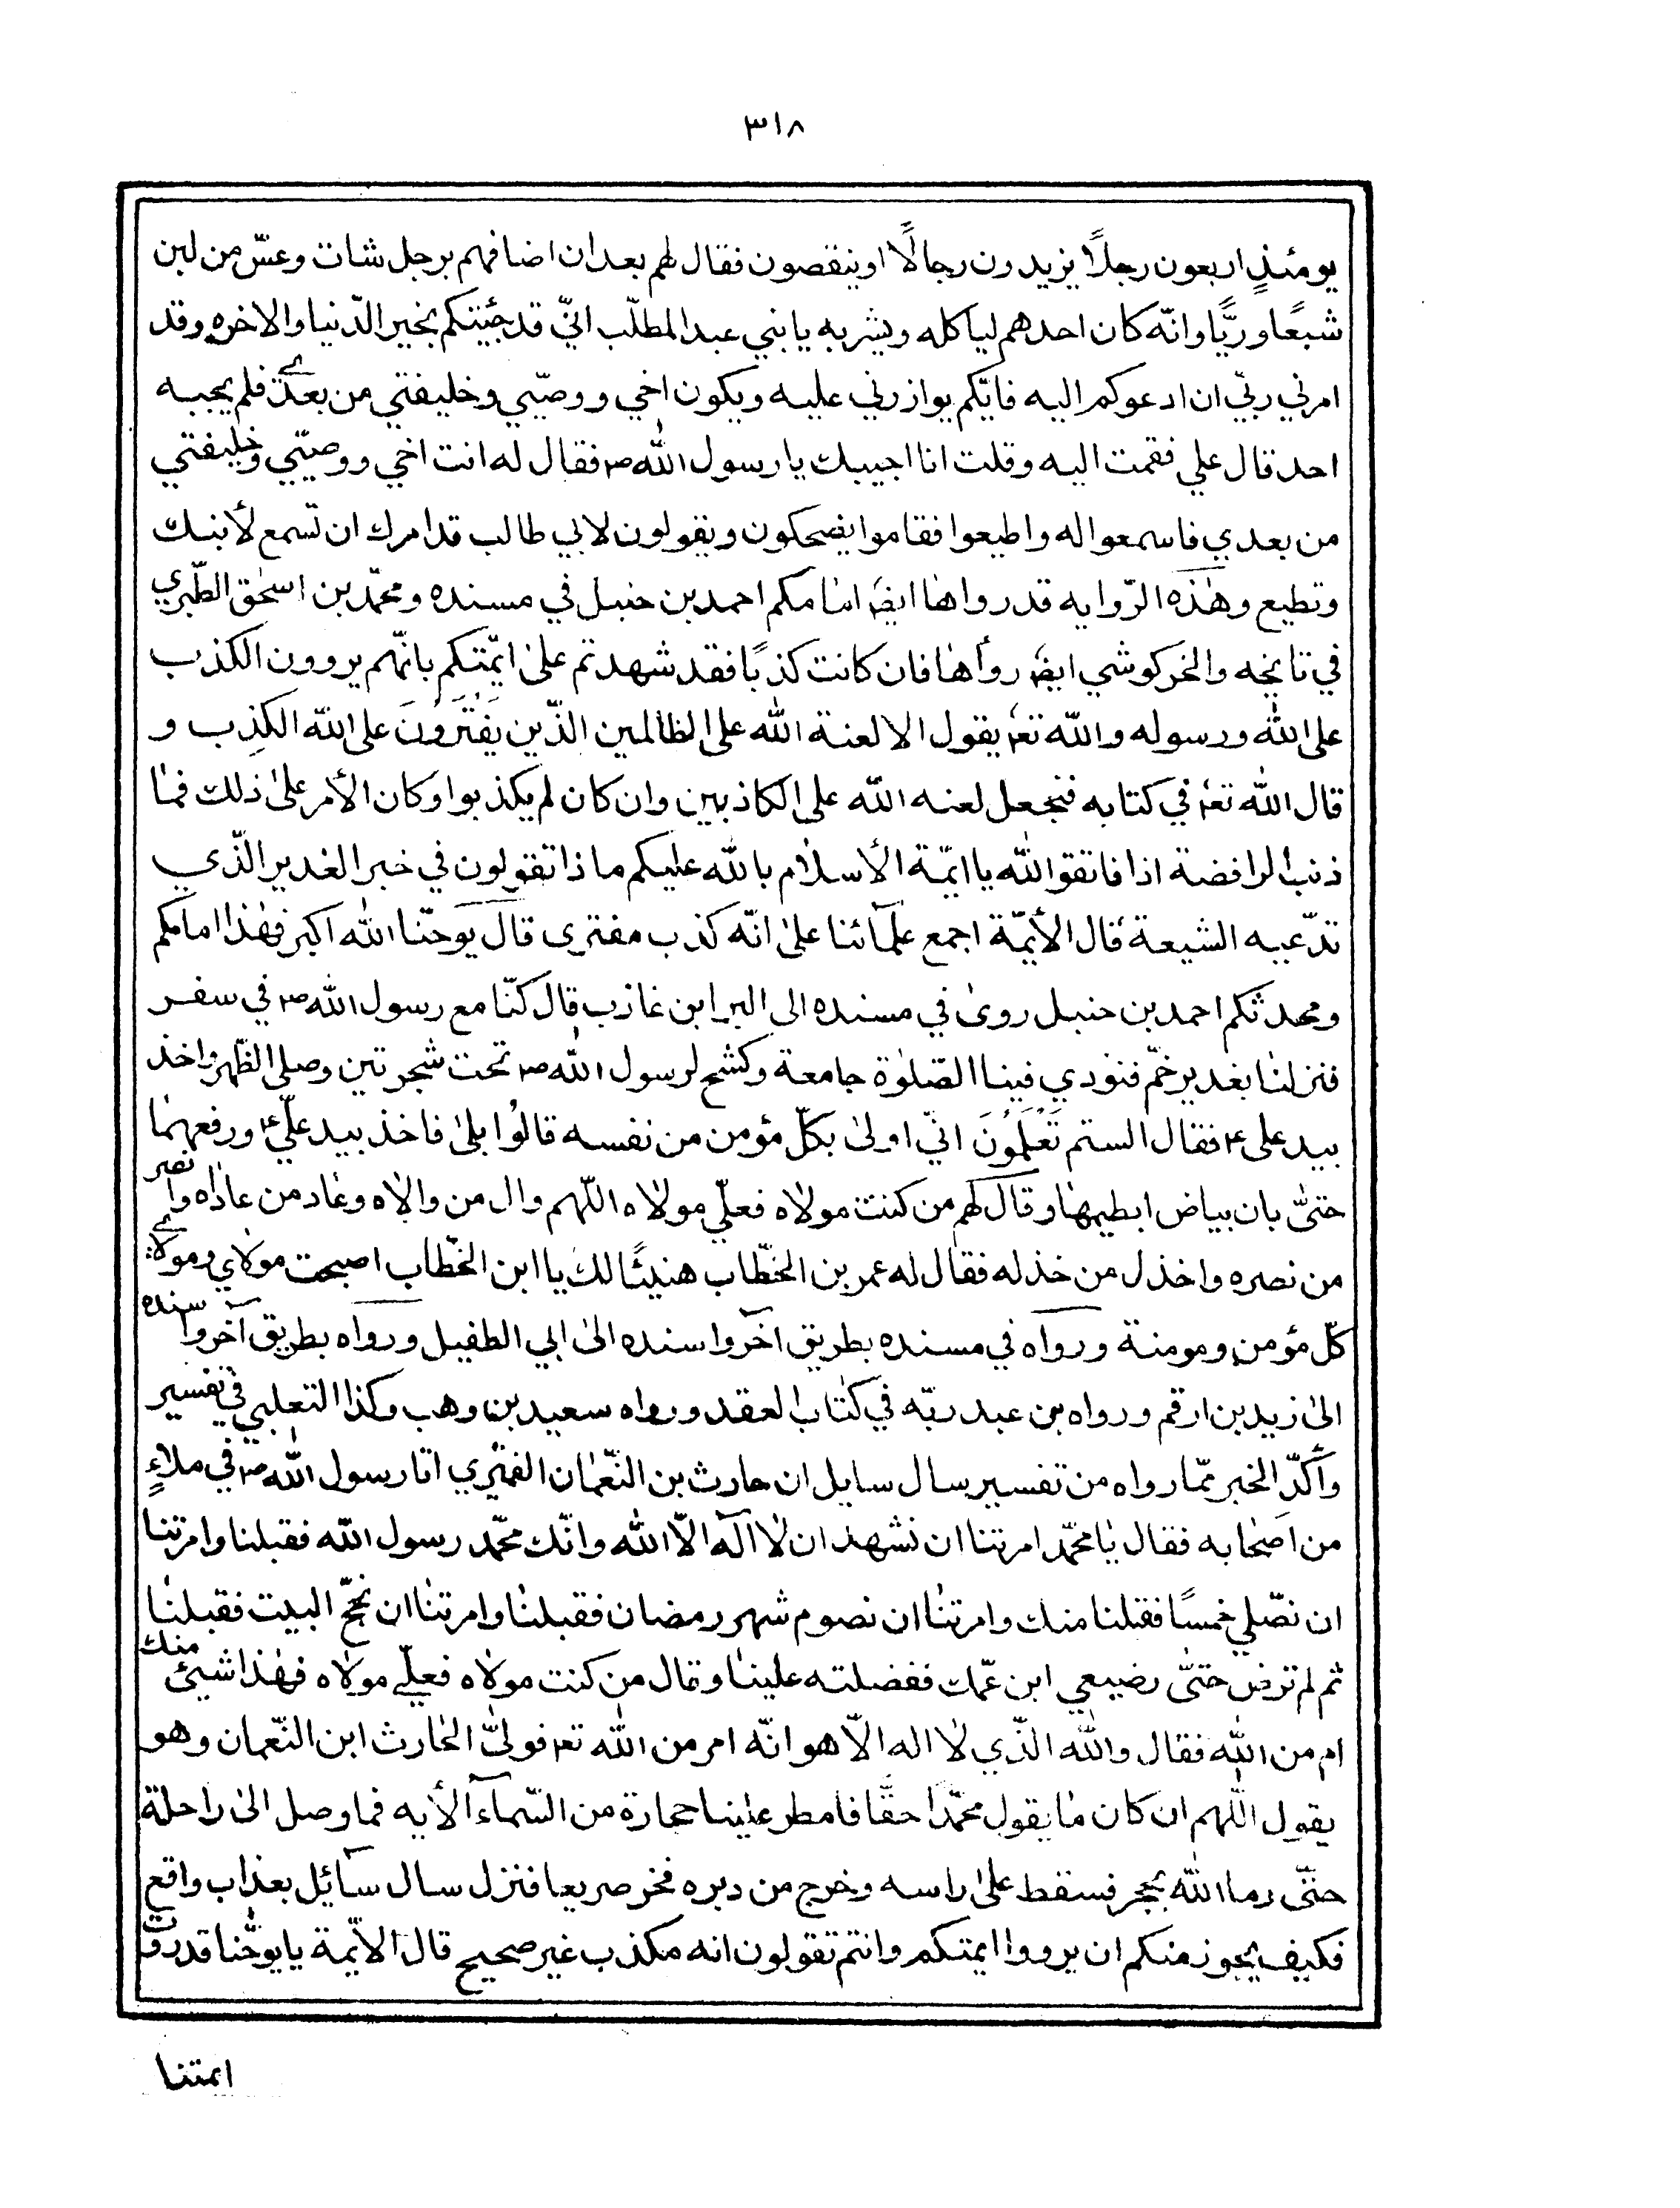 ٣١٨
يومئذٍ اربعون رجلًا يزيدون رجالًا او ينقصون فقال لهم بعد ان اضافهم برجل شات وعسّ من لبن
شبعًا وريًّا وانّه كان احدهم لياكله ويشربه يا بني عبد المطلّب انّي قد جئيتكم بخير الدّنيا والاخره وقد
امرني ربّي ان ادعوكم اليه فايّكم يوازرني عليه ويكون اخي ووصيّي وخليفتي من بعدي فلم يجبه
احد قال علي فقمت اليه وقلت انا اجيبك يا رسول الله ص فقال له انت اخي ووصيّي وخليفتي
من بعدي فاسمعوا له واطيعوا فقاموا يضحكون ويقولون لابي طالب قد امرك ان تسمع لأبنك
وتطيع وهذه الرّوايه قد رواها ايضا امامكم احمد بن حنبل في مسنده ومحمّد بن اسحٰق الطّبري
في تاريخه والخركوشي ايضا رواها فان كانت كذبًا فقد شهدتم على ايمّتكم بانّهم يروون الكذب
على الله ورسوله والله تع يقول الا لعنة الله على الظالمين الذّين يَفْتَرُونَ على الله الكذِب و
قال الله تع في كتابه فنجعل لعنه الله على الكاذبين وان كان لم يكذبوا وكان الأمر على ذلك فما
ذنب الرافضة اذا فاتقوا الله يا ايمّة الأسلام بالله عليكم ما ذا تقولون في خبر الغدير الذّي
تدّعيه الشيعة قال الأيمّة اجمع علمآئنا على انّه كذب مفترى قال يوحنّا الله اكبر فهذا امامكم
ومحدثكم احمد بن حنبل روى في مسنده الى البرا بن عازب قال كنّا مع رسول الله ص في سفر
فنزلنا بغدير خمّ فنودي فينا الصّلوٰة جامعة وكشح لرسول الله ص تحت شجرتين وصلى الظّهر واخذ
بيد على ع فقال الستم تَعْلَمُونَ انّي اولى بكلّ مؤمن من نفسه قالوُا بلى فاخذ بيد علّي ع ورفعهما
حتىّ بان بياض ابطيهما وقال لهم من كنت مولاه فعلّي مولاه اللّهم وال من والاه وعاد من عاداه وانصر
من نصره واخذل من خذله فقال له عمر بن الخطّاب هنيئًا لك يا ابن الخطّاب اصبحت مولاي ومولاي
كلّ مؤمن ومومنة ورواه في مسنده بطريق آخر واسنده الى ابي الطفيل ورواه بطريق آخر واسنده
الى زيد بن ارقم ورواه بن عبد ربّه في كتاب العقد ورواه سعيد بن وهب وكذا الثعلبي في تفسير
وأكّد الخبر ممّا رواه من تفسير سال سايل ان حارث بن النّعمان الفهري اتا رسول الله ص في ملاءٍ
من اصحابه فقال يا محمّد امرتنا ان نشهد ان لا اله الّا الله وانّك محمّد رسول الله فقبلنا وامرتنا
ان نصّلي خمسًا فقبلنا منك وامرتنا ان نصوم شهر رمضان فقبلنا وامرتنا ان نحجّ البيت فقبلنا
ثم لم ترض حتىّ بضبعي ابن عمّك ففضلته علينا وقال من كنت مولاه فعلّي مولاه فهذا شيئ منك
ام من الله فقال والله الذّي لا اله الّا هو انّه امر من الله تع فولىّ الحارث ابن النّعمان وهو
يقول اللّهم ان كان ما يقول محمّدا حقًّا فامطر علينا حجارة من السّماء الأيه فما وصل الى راحلة
حتّى رما الله بحجر فسقط على راسه وخرج من دبره فخر صريعا فنزل سال سآئل بعذاب واقع
فكيف يجوز منكم ان يرووا ايمتكم وانتم تقولون انه مكذب غير صحيح قال الأيمّة يا يوحّنا قد روت
ايمتنا